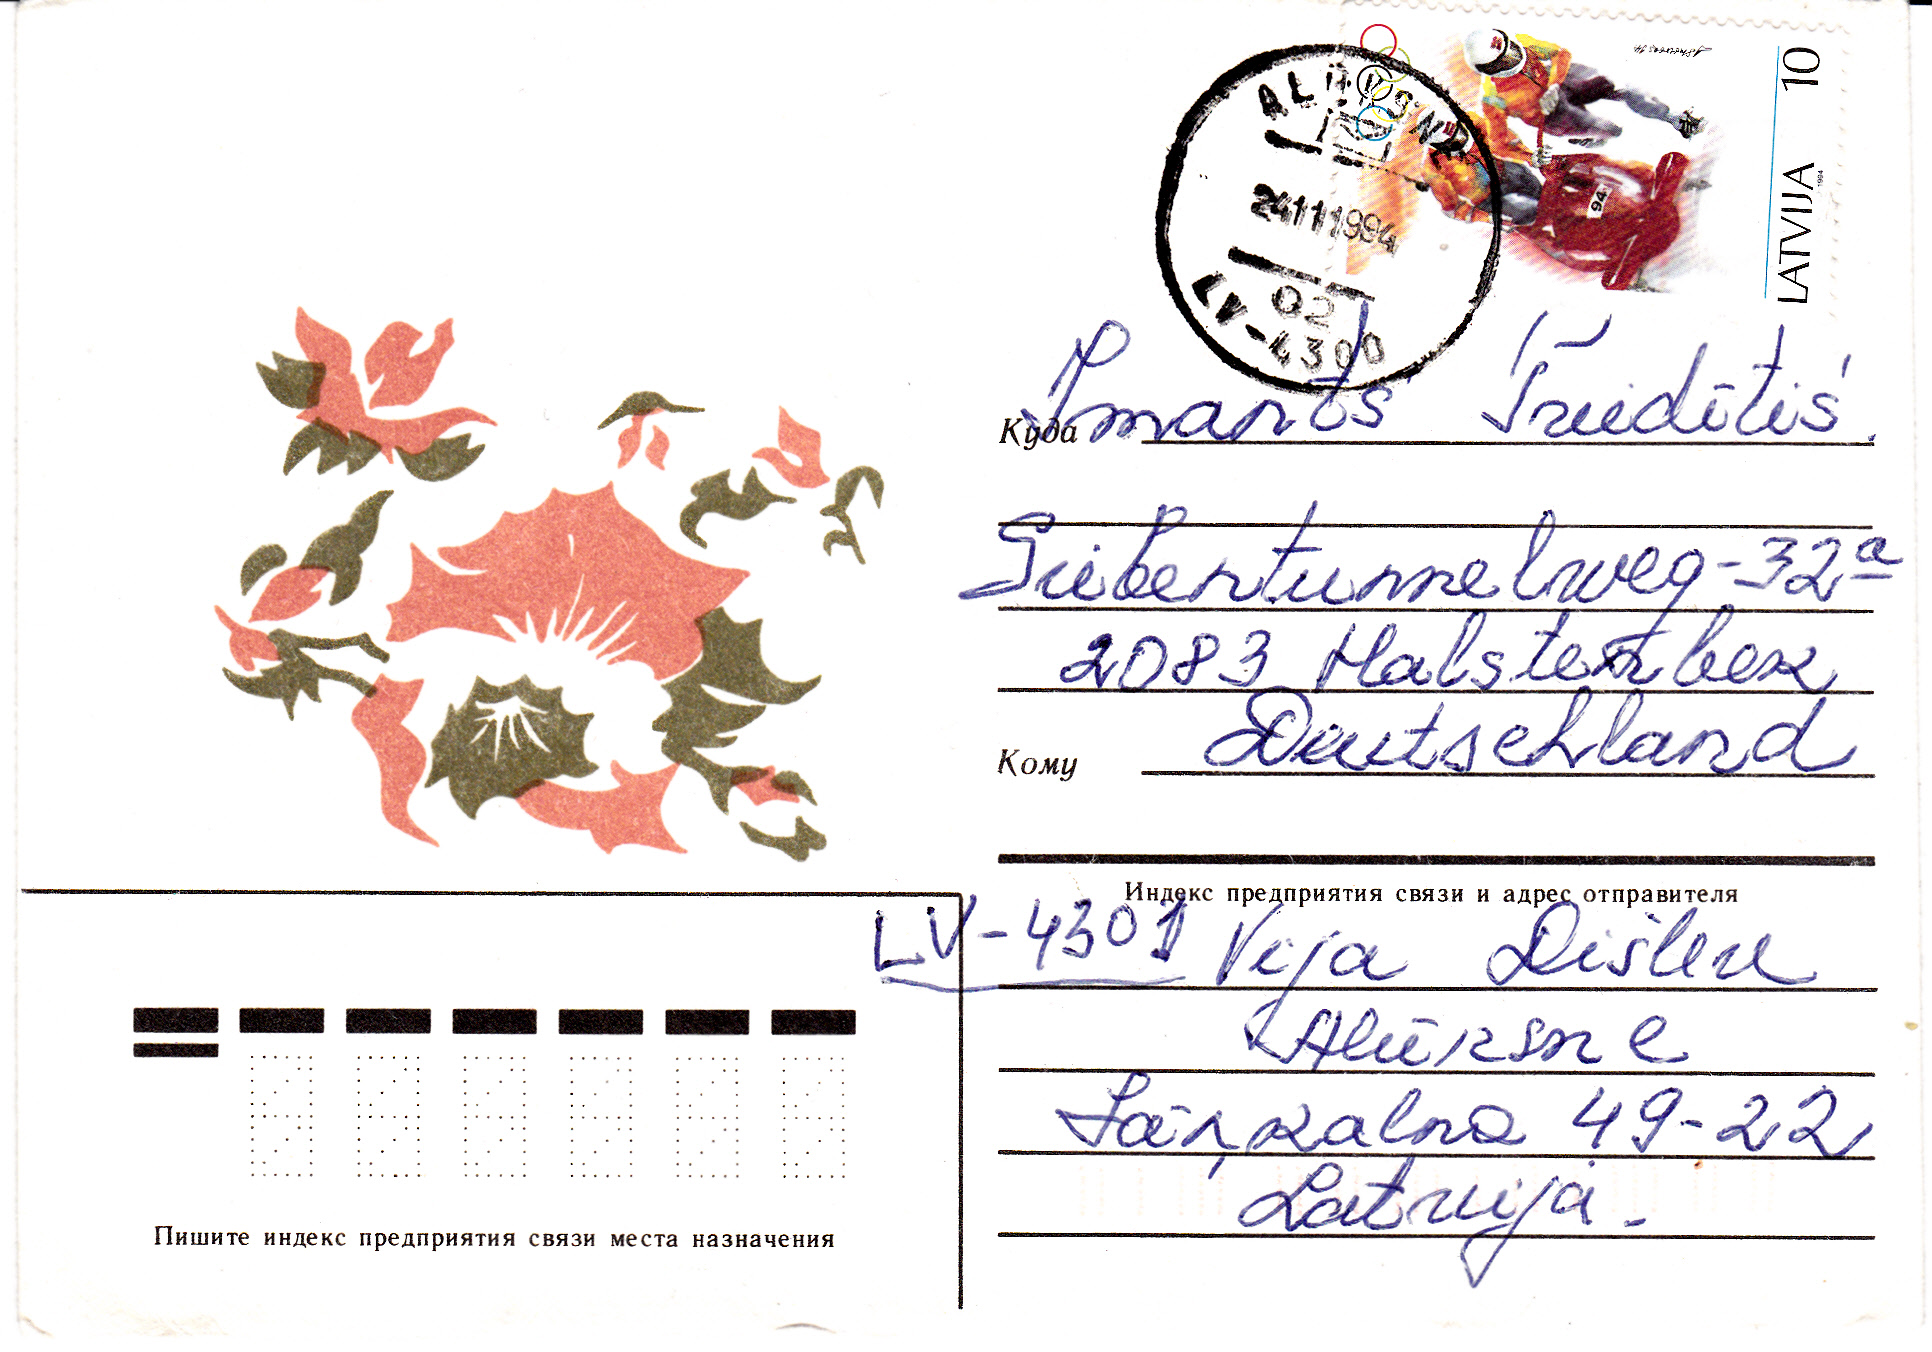 ALŪKSNE
24111994
02
LV-4300
94
LATVIJA 10
1994
Куда
Imants
Siebentunnelweg-32a
2083 Halstenbek
Кому Deutschland
Индекс предприятия связи и адрес отправителя
LV-4301 Vija Dišleru
Alūksne
Jāņkalna 49-22
Latvija.
Пишите индекс предприятия связи места назначения